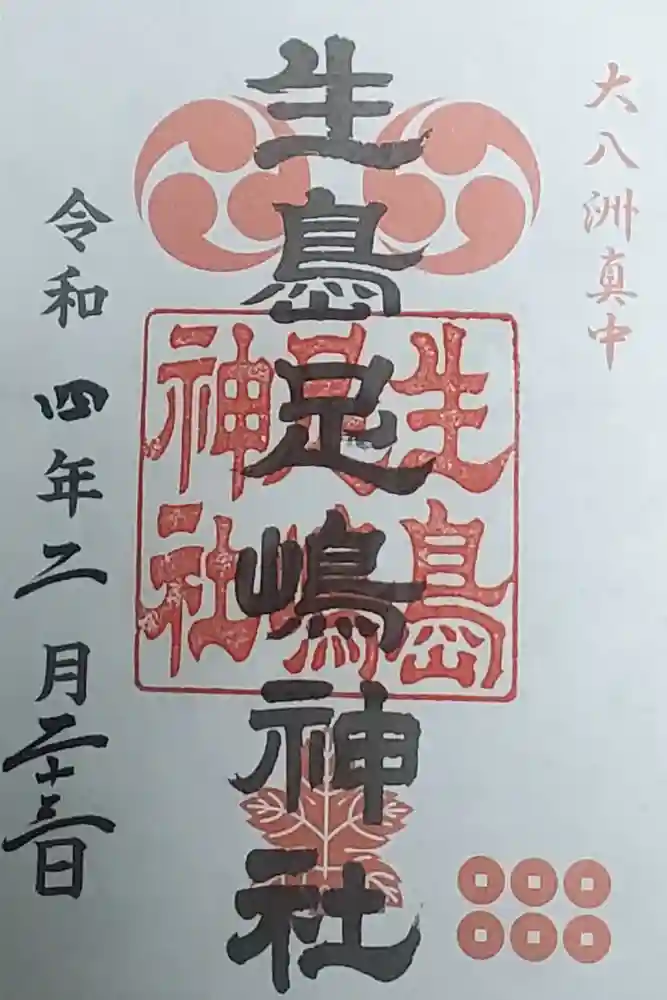 大八洲真中
生島足嶋神社
生島
足嶋
神社
令和四年二月二十三日